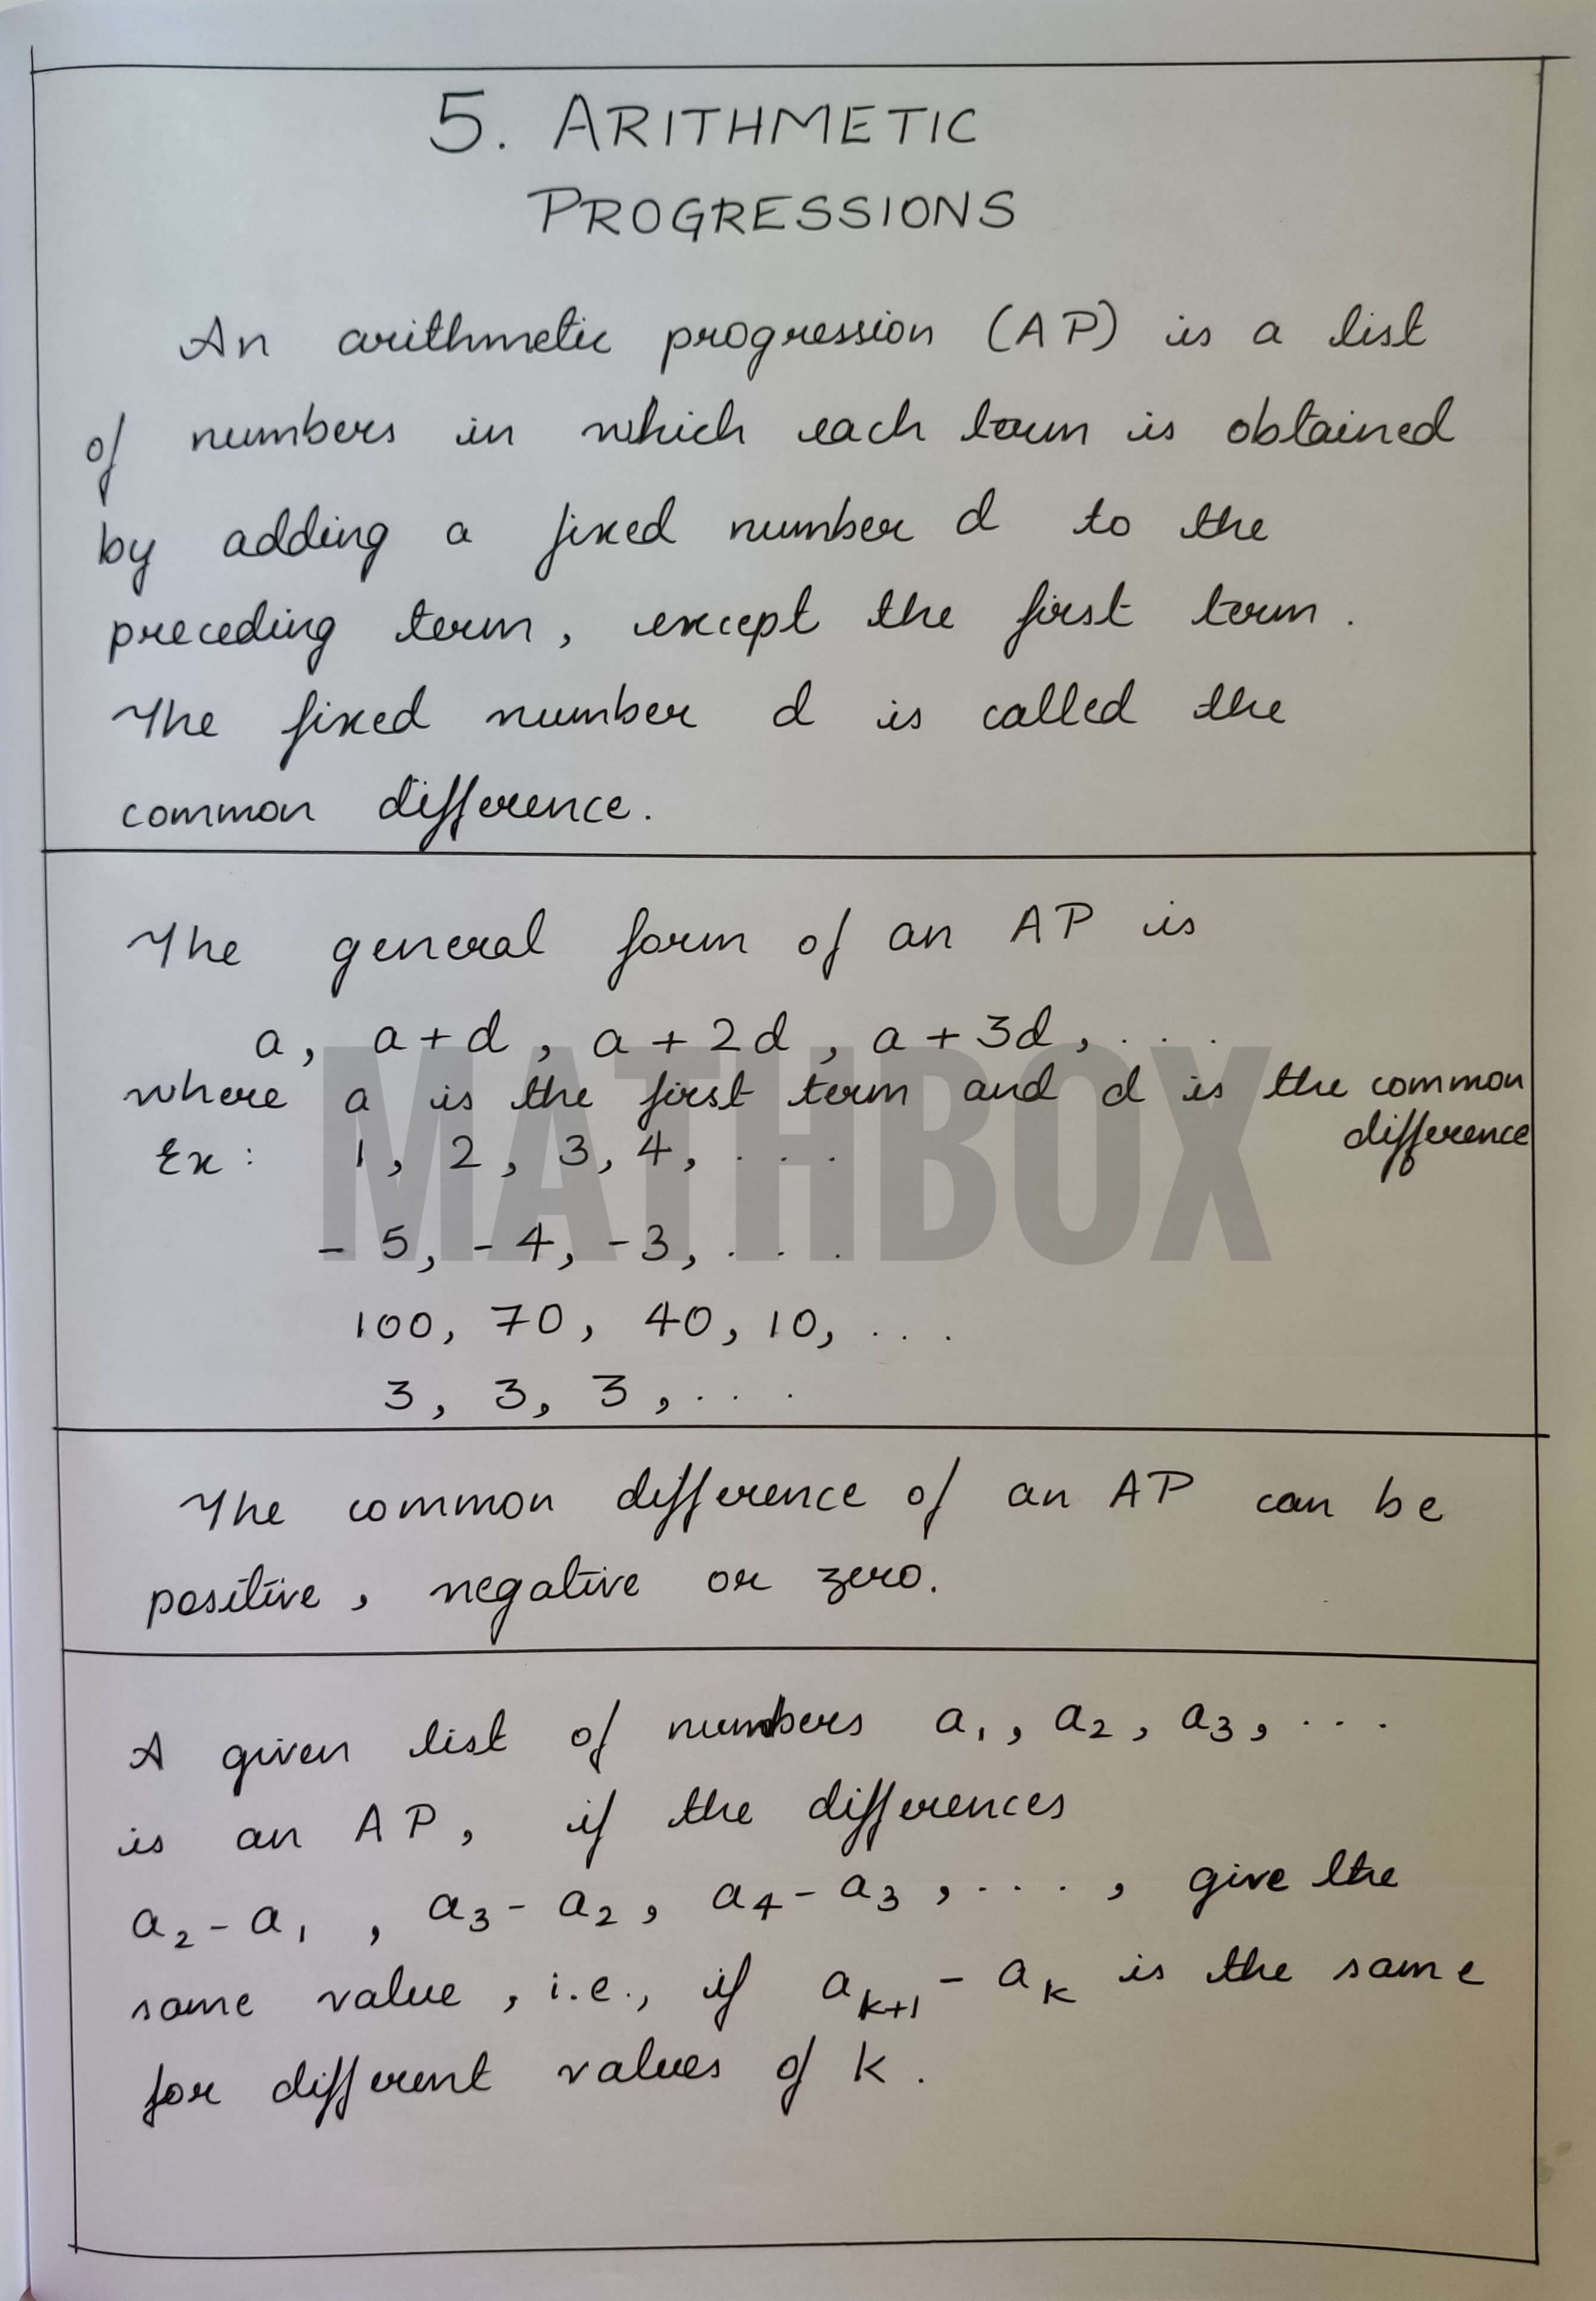 5. ARITHMETIC
PROGRESSIONS
An arithmetic progression (AP) is a list
of numbers in which each term is obtained
by adding a fixed number d to the
preceding term, except the first term.
The fixed number d is called the
common difference.
The general form of an AP is
a, a+d, a+2d, a+3d, ...
where a is the first term and d is the common
difference
Ex: 1, 2, 3, 4, ...
-5, -4, -3, ...
100, 70, 40, 10, ...
3, 3, 3, ...
MATHBOX
The common difference of an AP can be
positive, negative or zero.
A given list of numbers a₁, a₂, a₃, ...
is an AP, if the differences
a₂-a₁, a₃-a₂, a₄-a₃, ...., give the
same value, i.e., if aₖ₊₁ - aₖ is the same
for different values of k.